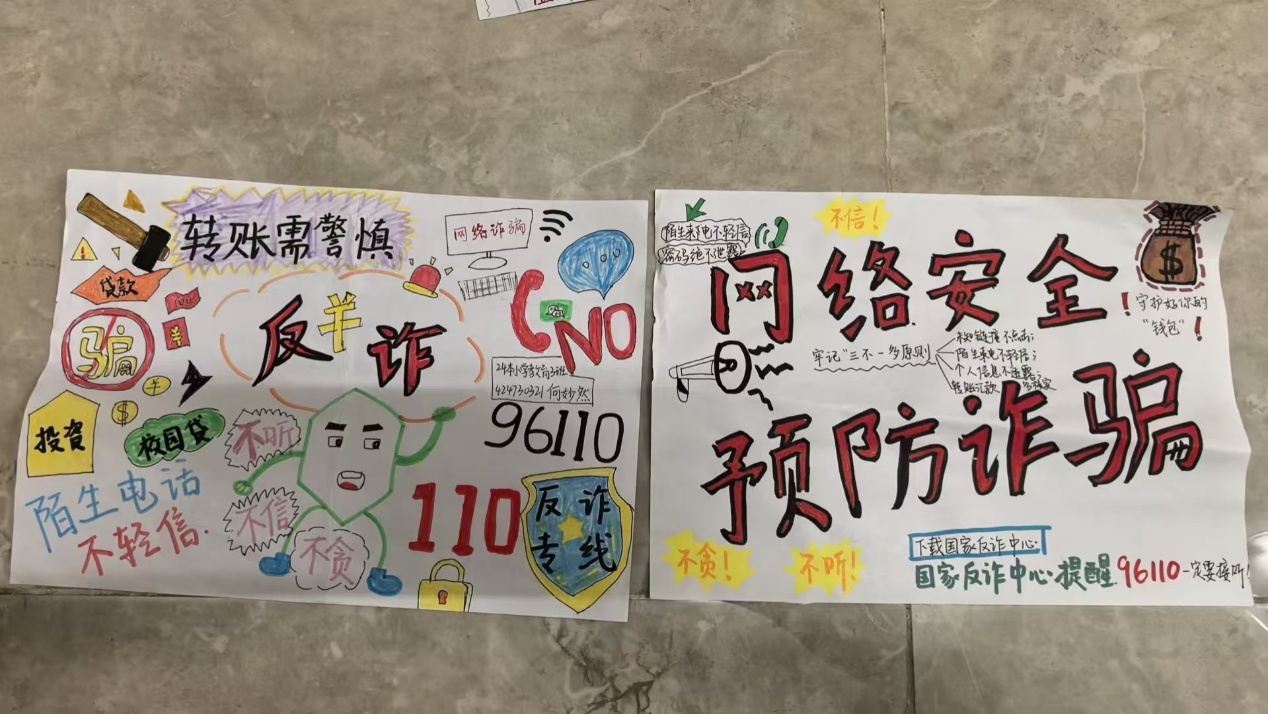 转账需警慎
网络诈骗
贷款
骗
反诈
NO
24本小学教育3班
424730321 何妙然
96110
投资
校园贷
不听
陌生电话
不轻信.
不信
不贪
110
反诈
专线
不信!
陌生来电不轻信
密码绝不泄露
网络安全!
守护好你的
“钱包”!
牢记“三不一多原则
未知链接不点击;
陌生来电不轻信;
个人信息不透露;
转账汇款多核实
预防诈骗
不贪!
不听!
下载国家反诈中心
国家反诈中心提醒96110一定要接听!